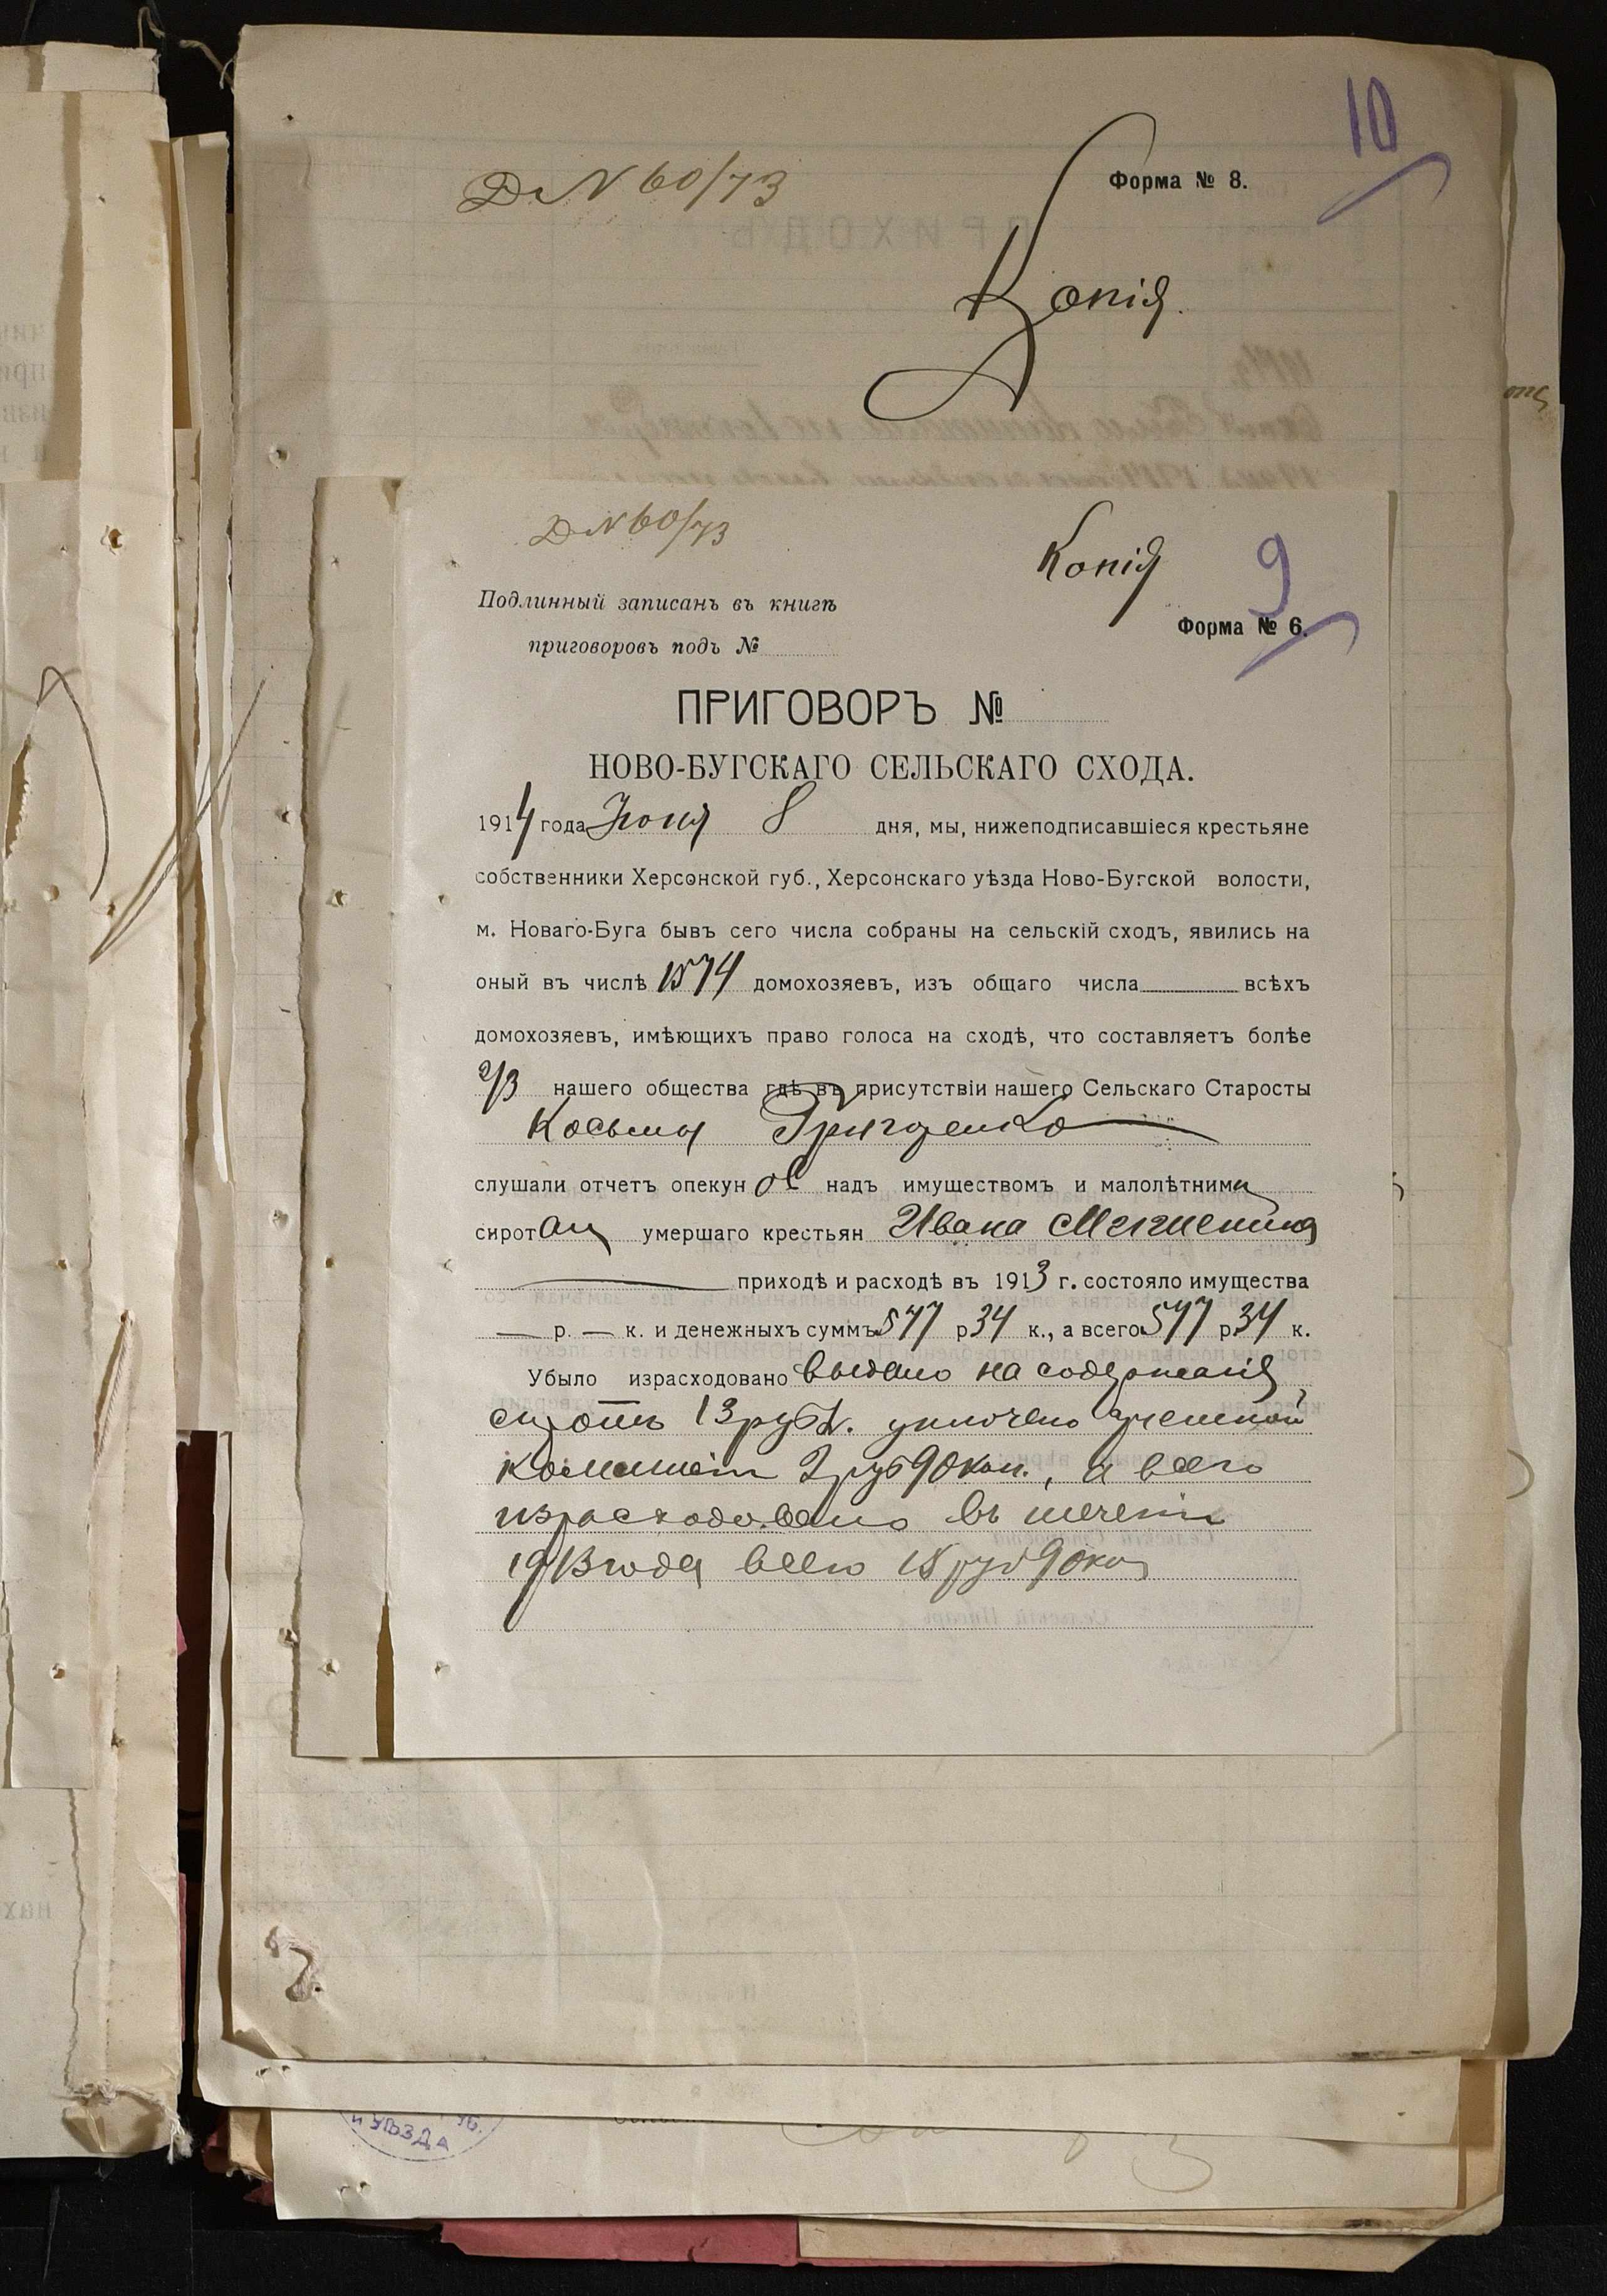 10
Д № 60/73
Форма № 8.
Копія.
Д № 60/73
Копія
9
Подлинный записанъ въ книгѣ
Форма № 6.
приговоровъ подъ №
ПРИГОВОРЪ №
НОВО-БУГСКАГО СЕЛЬСКАГО СХОДА.
1914 года Іюня 8 дня, мы, нижеподписавшіеся крестьяне
собственники Херсонской губ., Херсонскаго уѣзда Ново-Бугской волости,
м. Новаго-Буга бывъ сего числа собраны на сельскій сходъ, явились на
оный въ числѣ 1574 домохозяевъ, изъ общаго числа всѣхъ
домохозяевъ, имѣющихъ право голоса на сходѣ, что составляетъ болѣе
2/3 нашего общества гдѣ въ присутствіи нашего Сельскаго Старосты
Косьмы Григоренко
слушали отчетъ опекун надъ имуществомъ и малолѣтними
сиротами умершаго крестьян Ивана
приходѣ и расходѣ въ 1913 г. состояло имущества
— р. — к. и денежныхъ суммъ 577 р 34 к., а всего 577 р 34 к.
Убыло израсходовано выдано на содержанія
сиротъ 13 руб. уплочено учетной
комисіи 2 руб 90 коп., а всего
израсходовано въ теченіи
1913 года всего 15 руб 90 коп
И УѢЗДА